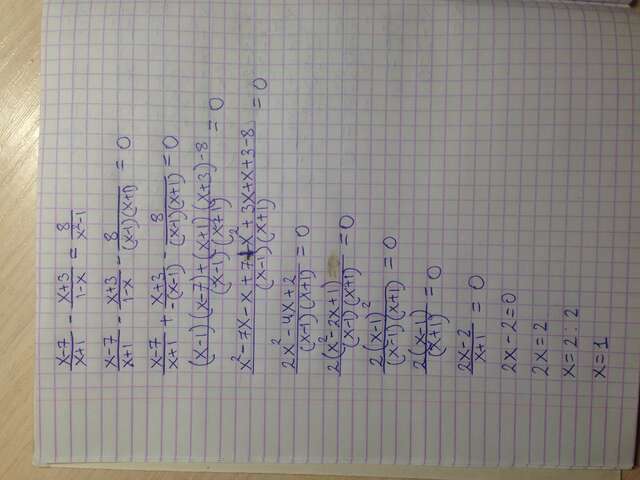 x-7/x+1 - x+3/1-x = 8/x²-1
x-7/x+1 - x+3/1-x - 8/(x-1)(x+1) = 0
x-7/x+1 + x+3/-(x-1) - 8/(x-1)(x+1) = 0
(x-1)(x-7)+(x+1)(x+3)-8/(x-1)(x+1) = 0
x²-7x-x+7+x²+3x+x+3-8/(x-1)(x+1) = 0
2x²-4x+2/(x-1)(x+1) = 0
2(x²-2x+1)/(x-1)(x+1) = 0
2(x-1)²/(x-1)(x+1) = 0
2(x-1)/(x+1) = 0
2x-2/x+1 = 0
2x-2=0
2x=2
x=2:2
x=1